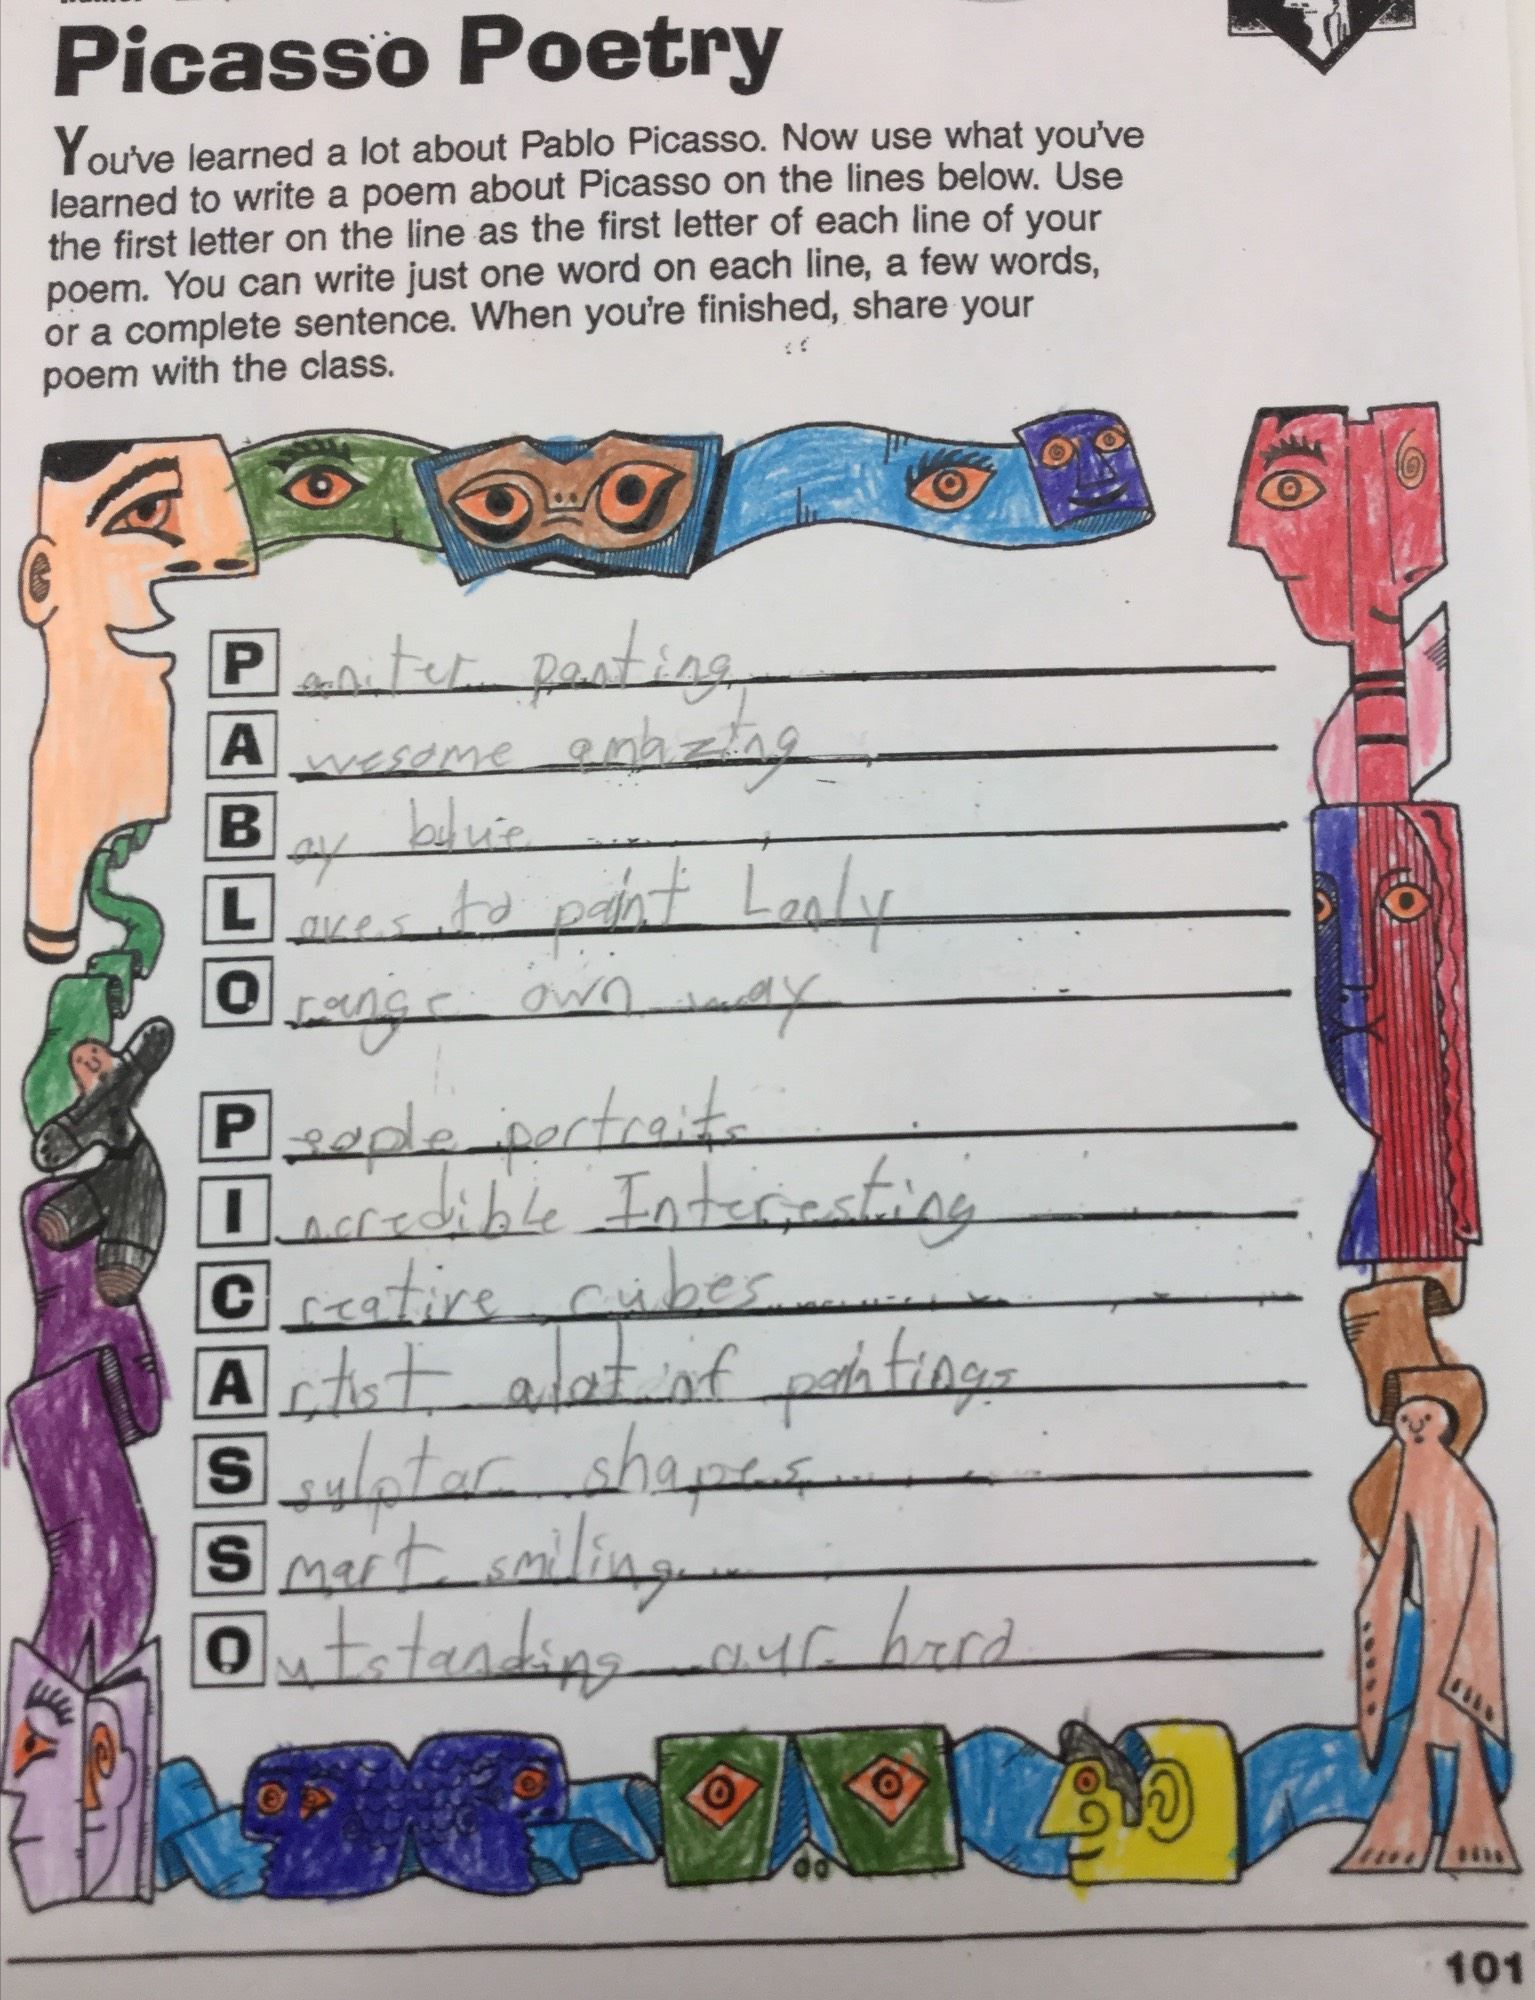 Picasso Poetry
You've learned a lot about Pablo Picasso. Now use what you've
learned to write a poem about Picasso on the lines below. Use
the first letter on the line as the first letter of each line of your
poem. You can write just one word on each line, a few words,
or a complete sentence. When you're finished, share your
poem with the class.
P aniter panting
A wesome amazing
B oy blue
L oves to paint Lonly
O range own way
P eaple portraits
I ncredible Interesting
C reative cubes
A rtist alot of paintings
S sulptar shapes
S mart smiling
O utstanding our
101